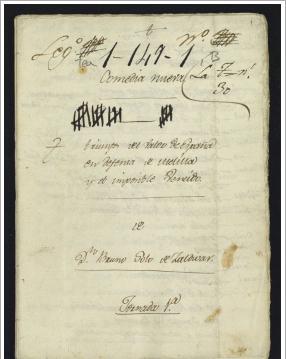 Leg.º N.º
Tea 1-149-1, B
Comedia nueva La 7 n.!
30
triunfo del Valor de España
en defensa de Melilla
y el imposible Vencido.
de
D.n Bruno Solo de Zaldivar.
Jornada 1.a